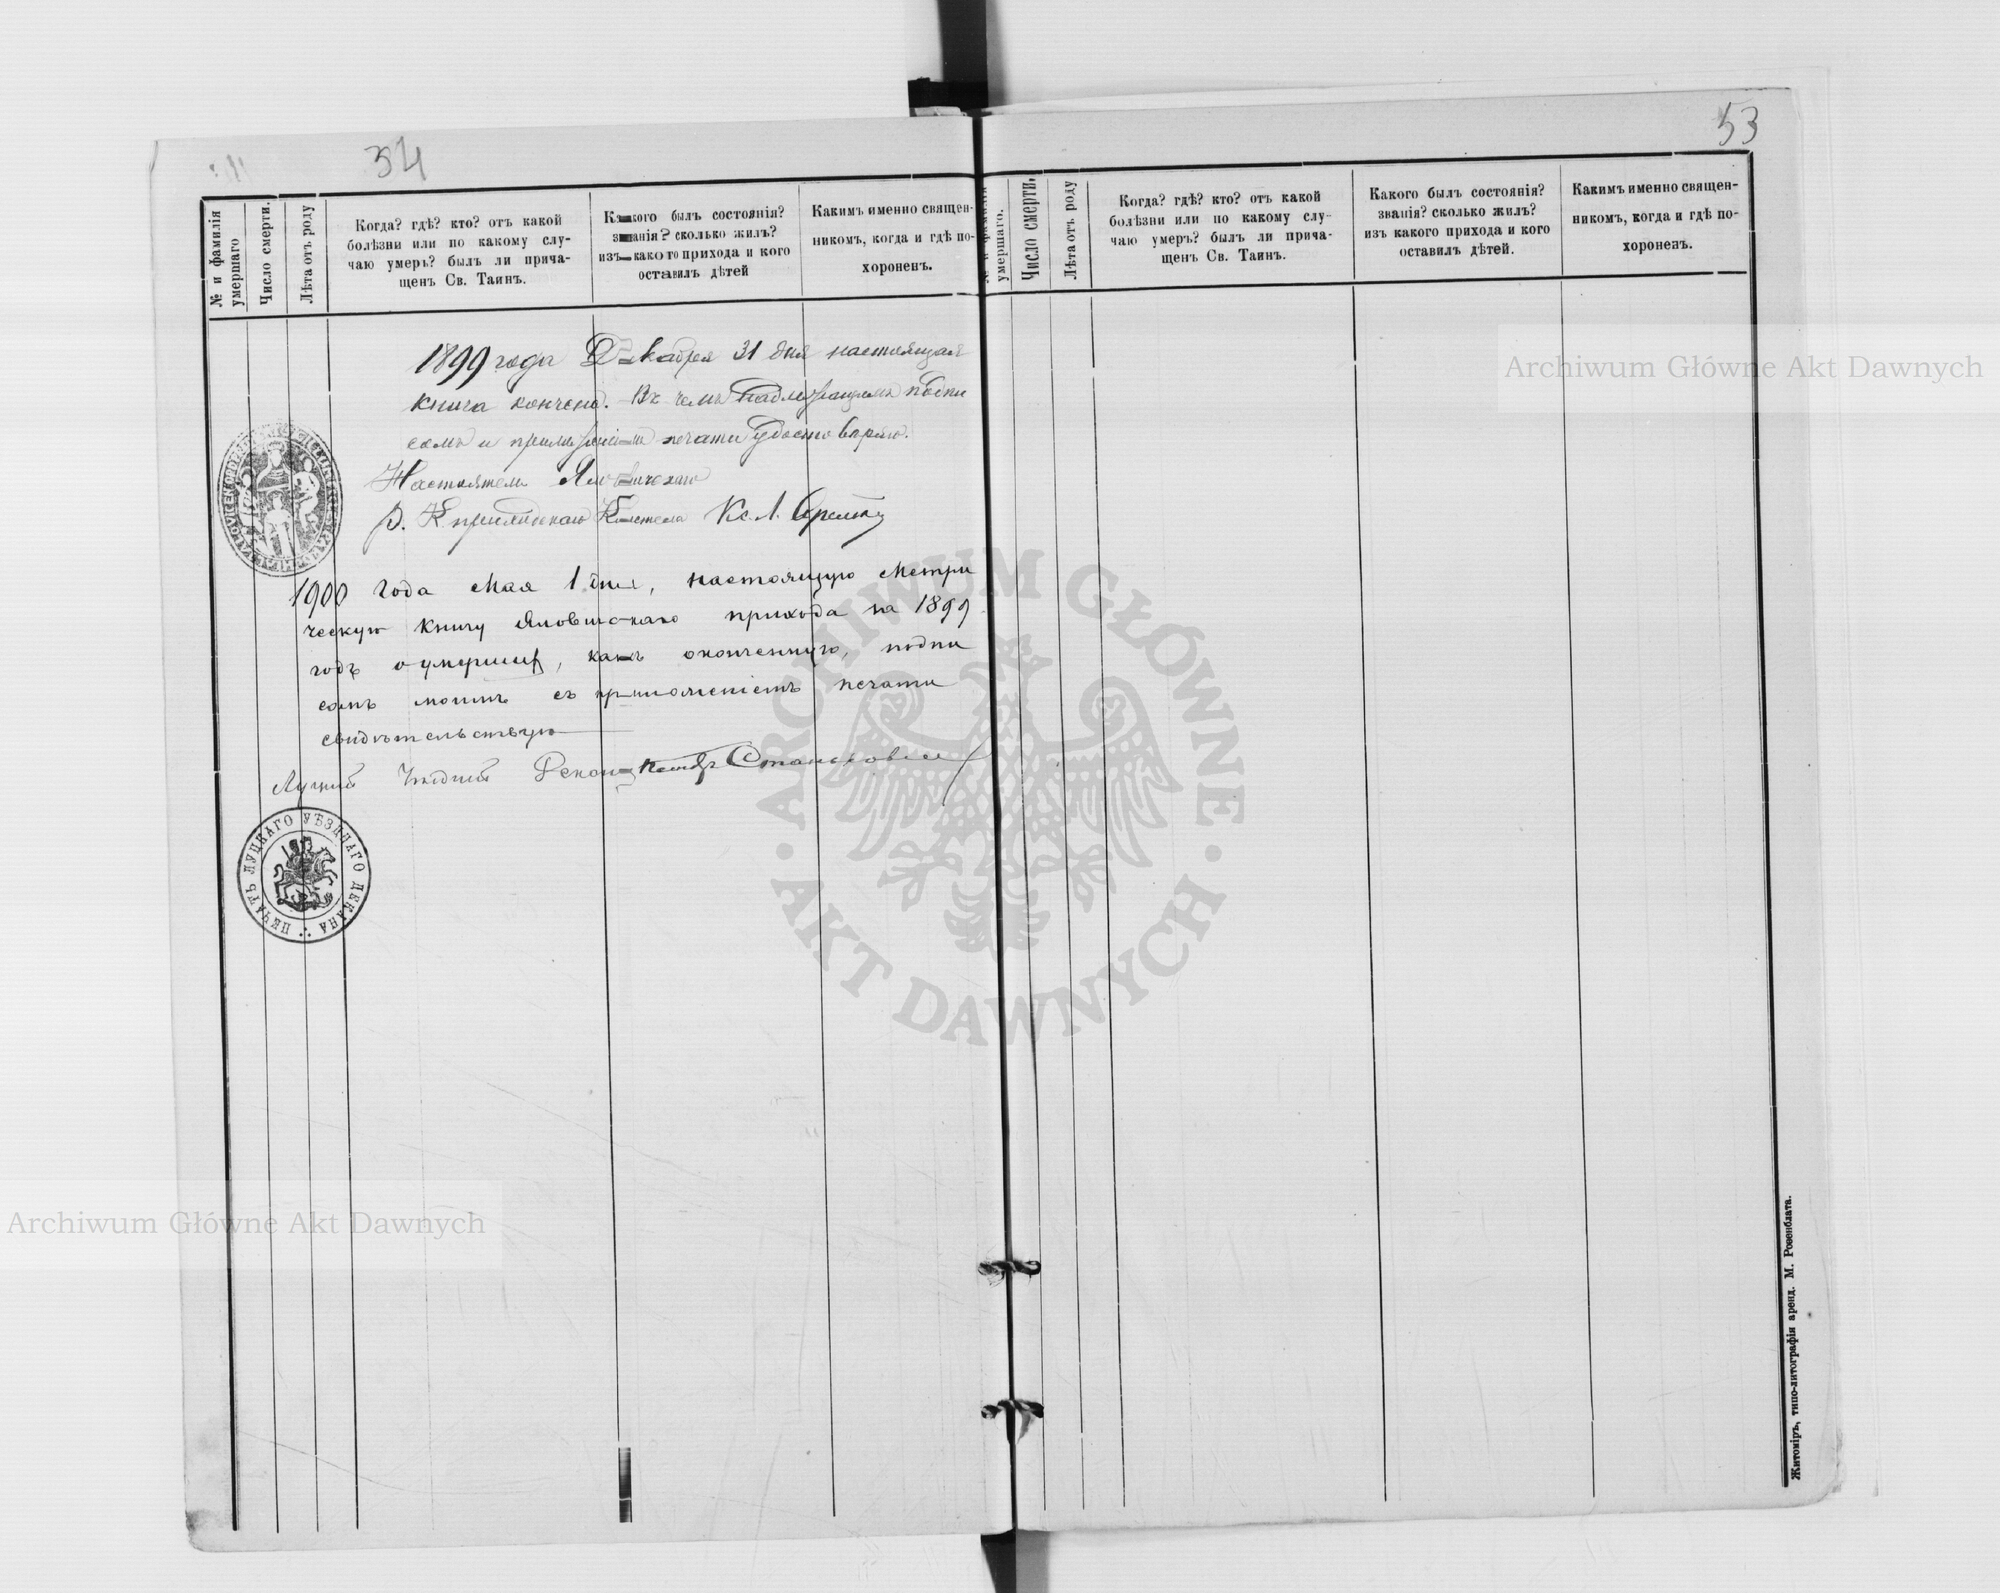 34
№ и фамилія умершаго
Число смерти.
Лѣта отъ роду
Когда? гдѣ? кто? отъ какой
болѣзни или по какому слу-
чаю умеръ? былъ ли прича-
щенъ Св. Таинъ.
Какого былъ состоянія?
званія? сколько жилъ?
изъ какого прихода и кого
оставилъ дѣтей
Какимъ именно священ-
никомъ, когда и гдѣ по-
хороненъ.
1899 года Декабря 31 дня настоящая
книга кончена. Въ чемъ надлежащимъ подпи
сомъ и приложеніемъ печати удостовѣряю.
Настоятель
р. К приходскаго Костела Кс. Л.
1900 года Мая 1 дня, настоящую Метри
ческую книгу прихода на 1899
годъ о умершихъ, какъ оконченную, подпи
сомъ моимъ съ приложеніемъ печати
свидѣтельствую
Луцкій Уѣздный Декан
ПЕЧАТЬ ЛУЦКАГО УѢЗДНАГО ДЕКАНА
53
№ и фамилія умершаго.
Число смерти.
Лѣта отъ роду
Когда? гдѣ? кто? отъ какой
болѣзни или по какому слу-
чаю умеръ? былъ ли прича-
щенъ Св. Таинъ.
Какого былъ состоянія?
званія? сколько жилъ?
изъ какого прихода и кого
оставилъ дѣтей.
Какимъ именно священ-
никомъ, когда и гдѣ по-
хороненъ.
Житомiръ, типо-литографія аренд. М. Розенблата.
Archiwum Główne Akt Dawnych
ARCHIWUM GŁÓWNE
AKT DAWNYCH
Archiwum Główne Akt Dawnych